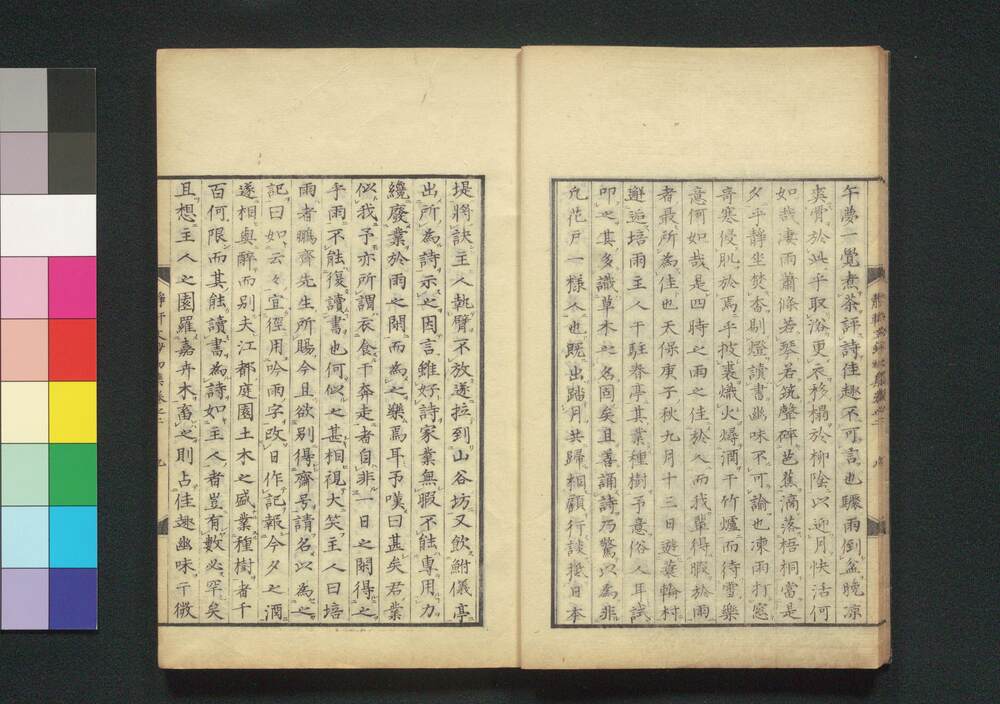 午夢一覺煮茶評詩佳趣不可言也驟雨倒盆晚凉
爽肎於此乎取浴更衣移榻於柳陰以迎月快活何
如哉凄雨蕭條若琴若筑聲碎芭蕉滴落梧桐當是
夕乎靜坐焚香剔燈讀書幽味不可諭也凍雨打窓
奇寒侵肌於焉乎披裘熾火燖酒于竹爐而待雪樂
意何如哉是四時之雨之佳於人而我輩得暇於雨
者最所為佳也天保庚子秋九月十三日遊蓑輪村
邂逅培雨主人于駐春亭其業種樹予意俗人耳試
叩之其多識草木之名固矣且善誦詩乃驚以為非
凡花戸一様人也既出踏月共歸相顧行談抵日本
堤將訣主人執臂不放遂拉到山谷坊又飲鮒儀亭
出所為詩示之因言雖好詩家業無暇不能專用力
纔廢業於雨之閑而為之樂焉耳予嘆曰甚矣君業
似我予亦所謂衣食于奔走者自非一日之閑得之
乎雨不能復讀書也何似之甚相視大笑主人曰培
雨者鵬齋先生所賜今且欲别得齋号請名以為之
記曰如云々宜徑用吟雨字改日作記報今夕之酒
遂相與醉而别夫江都庭園土木之盛業種樹者千
百何限而其能讀書為詩如主人者豈有數必罕矣
且想主人之園羅嘉卉木畜之則占佳趣幽味亍微